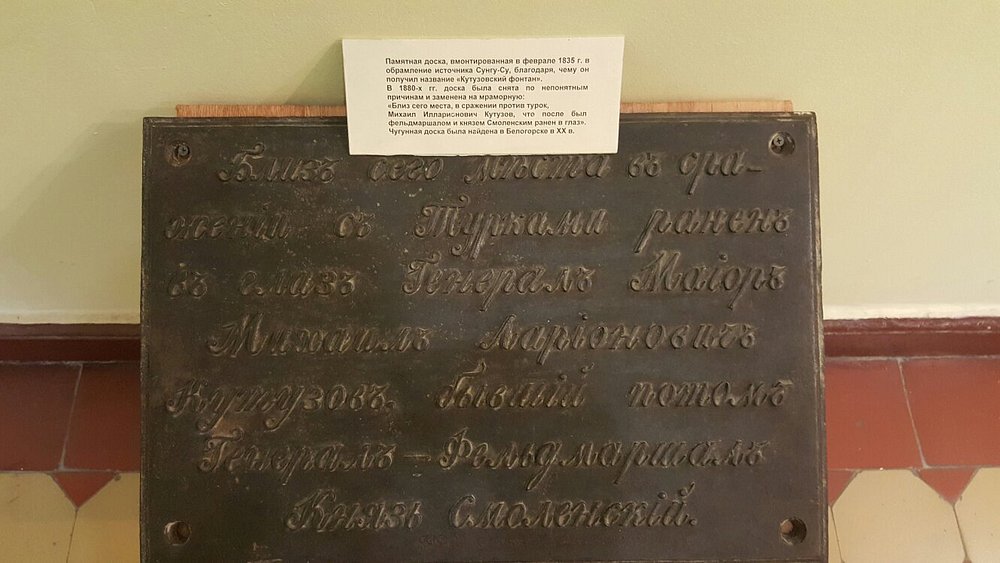 Памятная доска, вмонтированная в феврале 1835 г. в
обрамление источника Сунгу-Су, благодаря, чему он
получил название «Кутузовский фонтан».
В 1880-х гг. доска была снята по непонятным
причинам и заменена на мраморную:
«Близ сего места, в сражении против турок,
Михаил Иллариснович Кутузов, что после был
фельдмаршалом и князем Смоленским ранен в глаз».
Чугунная доска была найдена в Белогорске в XX в.
Близъ сего мѣста въ сра–
женіи съ Турками раненъ
въ глазъ Генералъ Маіоръ
Михаилъ Ларіоновичъ
Кутузовъ. бывшій потомъ
Генералъ – Фельдмаршалъ
Князь Смоленскій.